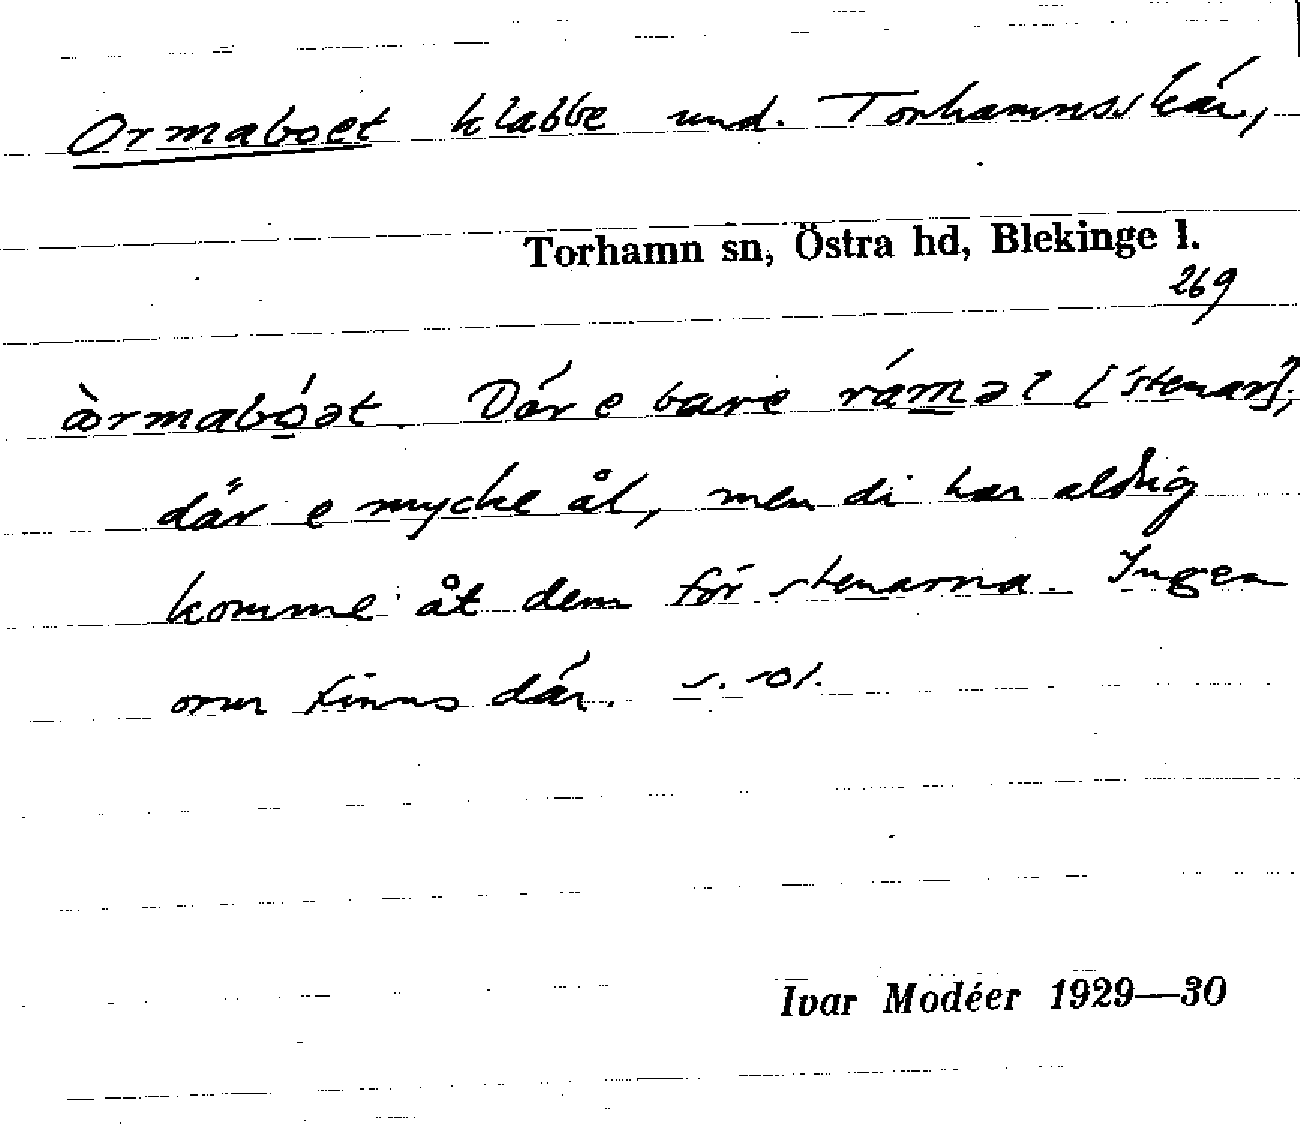 Ormaboet klabbe und. Torhamnsskär,
Torhamn sn, Östra hd, Blekinge l.
269
Där e bare ráməl [stenar],
där e mycke ål, men di har aldrig
komme åt dem för stenarna. Ingen
orm finns där.
Ivar Modéer 1929—30